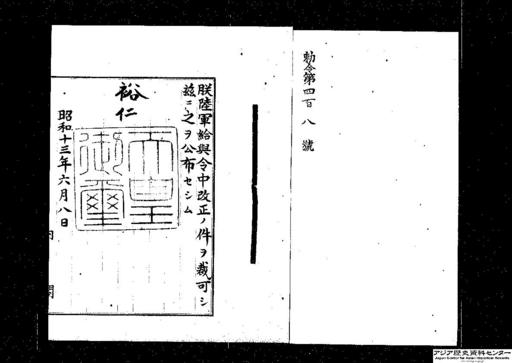 勅令第四百八號
朕陸軍給與令中改正ノ件ヲ裁可シ
茲ニ之ヲ公布セシム
裕仁
天皇御璽
昭和十三年六月八日
内閣
アジア歴史資料センター
Japan Center for Asian Historical Records